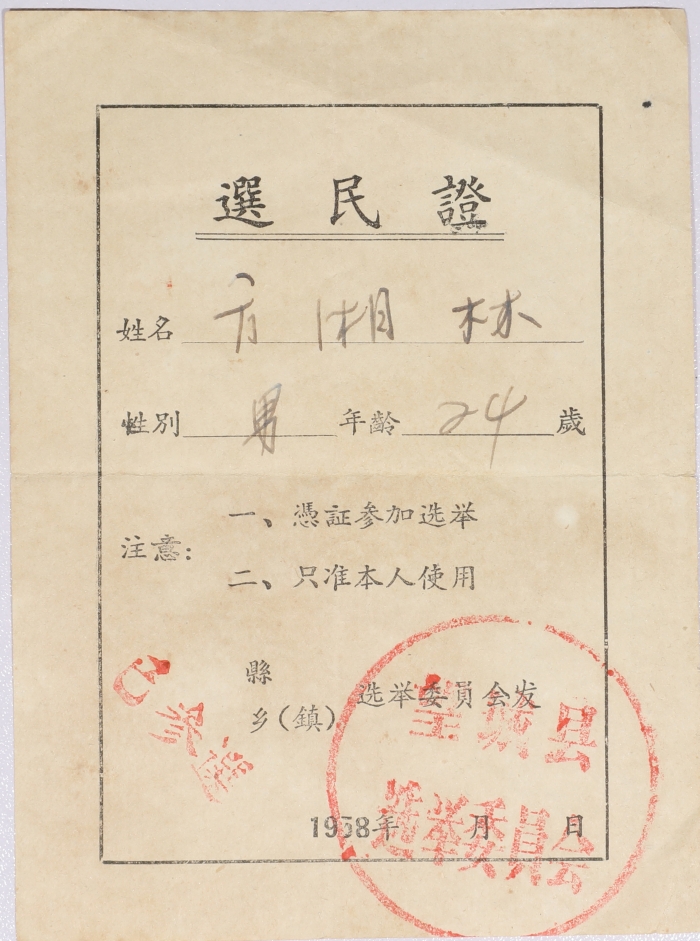 選民證
姓名 方湘林
性別 男 年齡 24 歲
注意:
一、憑証参加选举
二、只准本人使用
縣
乡(鎮)
选举委員会发
1958年 月 日
已參選
城县
选举委員会